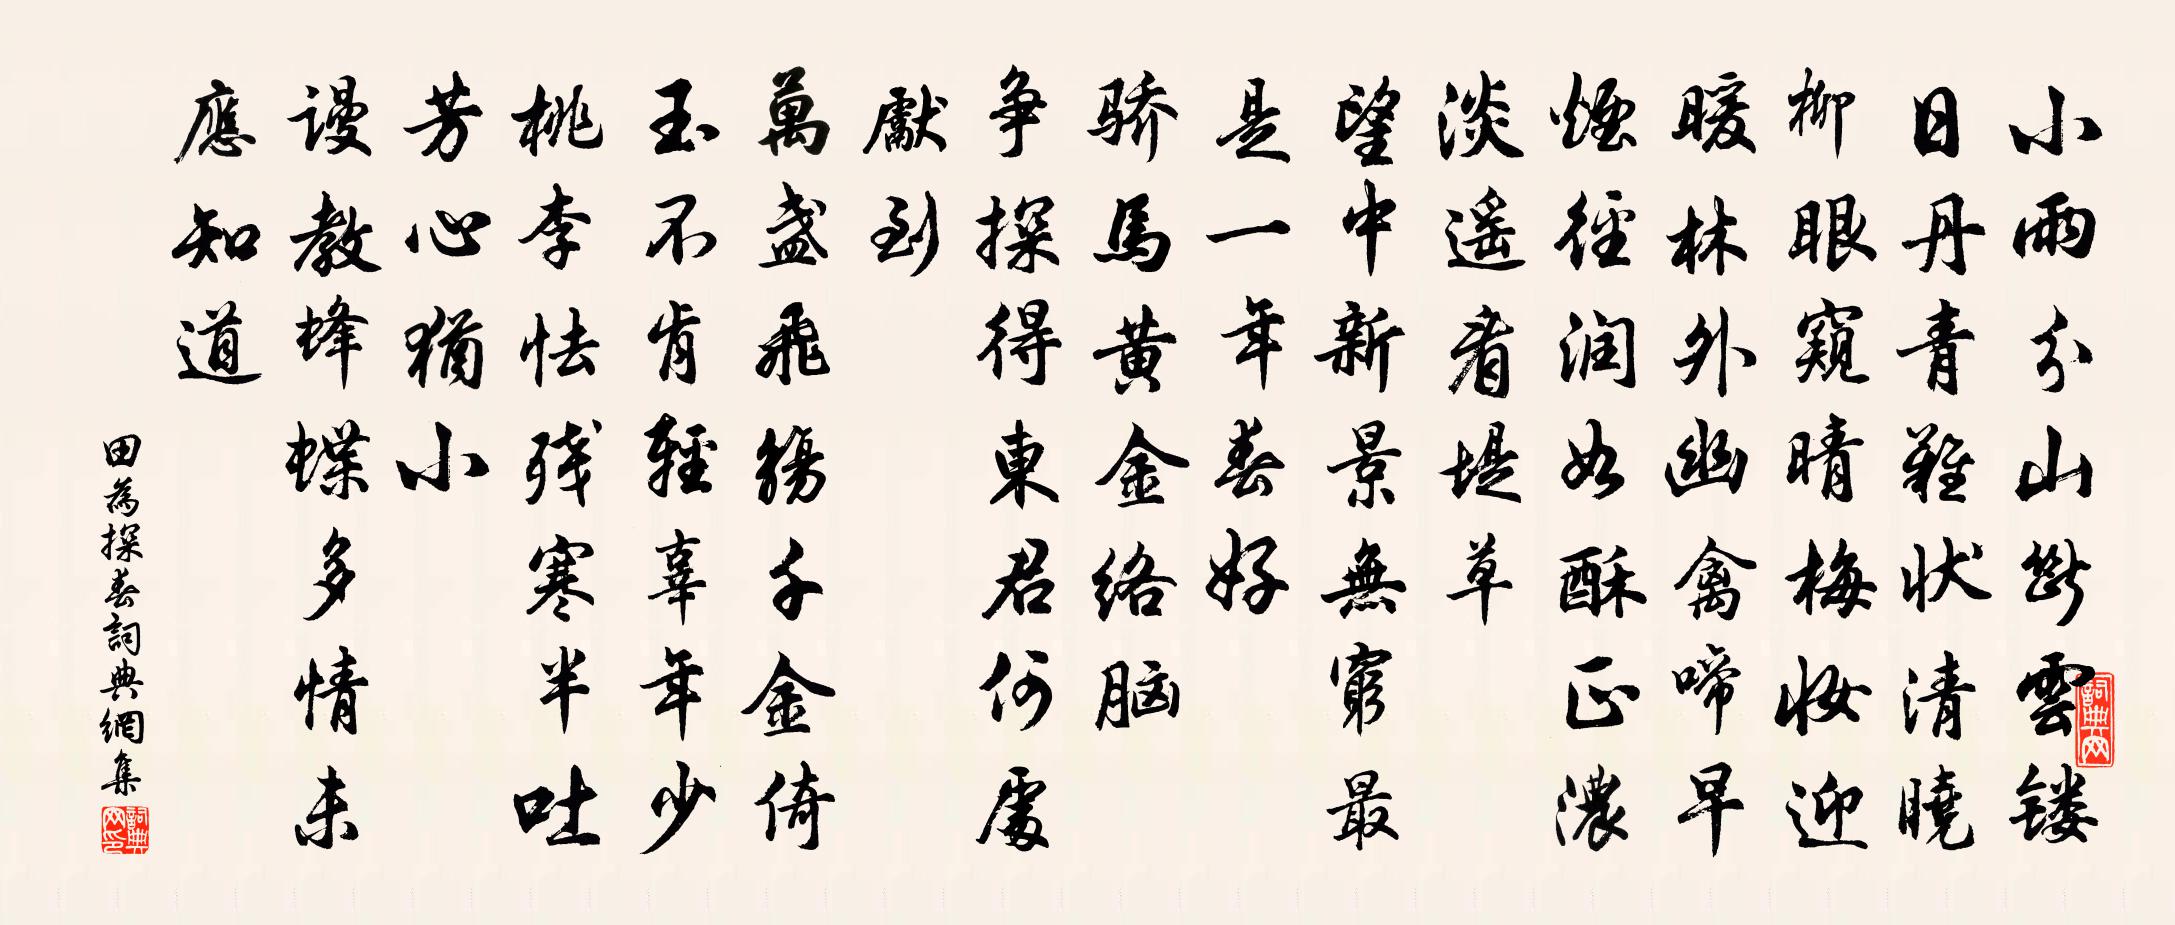 小雨分山斷雲镂
日丹青難状清曉
柳眼窺晴梅妝迎
暖林外幽禽啼早
煙徑润如酥正濃
淡遥看堤草
望中新景無窮最
是一年春好
骄馬黄金络脑
争探得東君何處
獻到
萬盞飛觴千金倚
玉不肯輕辜年少
桃李怯残寒半吐
芳心猶小
谩教蜂蝶多情未
應知道
田為探春詞典網集
詞典网
詞典网印